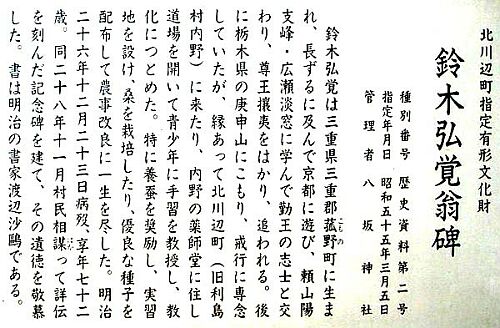 北川辺町指定有形文化財
鈴木弘覚翁碑
種別番号 歴史資料第二号
指定年月日 昭和五十五年三月五日
管理者 八坂神社
鈴木弘覚は三重県三重郡菰野町に生ま
れ、長ずるに及んで京都に遊び、頼山陽
支峰・広瀬淡窓に学んで勤王の志士と交
わり、尊王攘夷をはかり、追われる。後
に栃木県の庚申山にこもり、戒行に専念
していたが、縁あって北川辺町（旧利島
村内野）に来たり、内野の薬師堂に住し
道場を開いて青少年に手習を教授し、教
化につとめた。特に養蚕を奨励し、実習
地を設け、桑を栽培したり、優良な種子を
配布して農事改良に一生を尽した。明治
二十六年十二月二十三日病歿、享年七十二
歳。同二十八年十一月村民相謀って詳伝
を刻んだ記念碑を建て、その遺徳を敬慕
した。書は明治の書家渡辺沙鷗である。